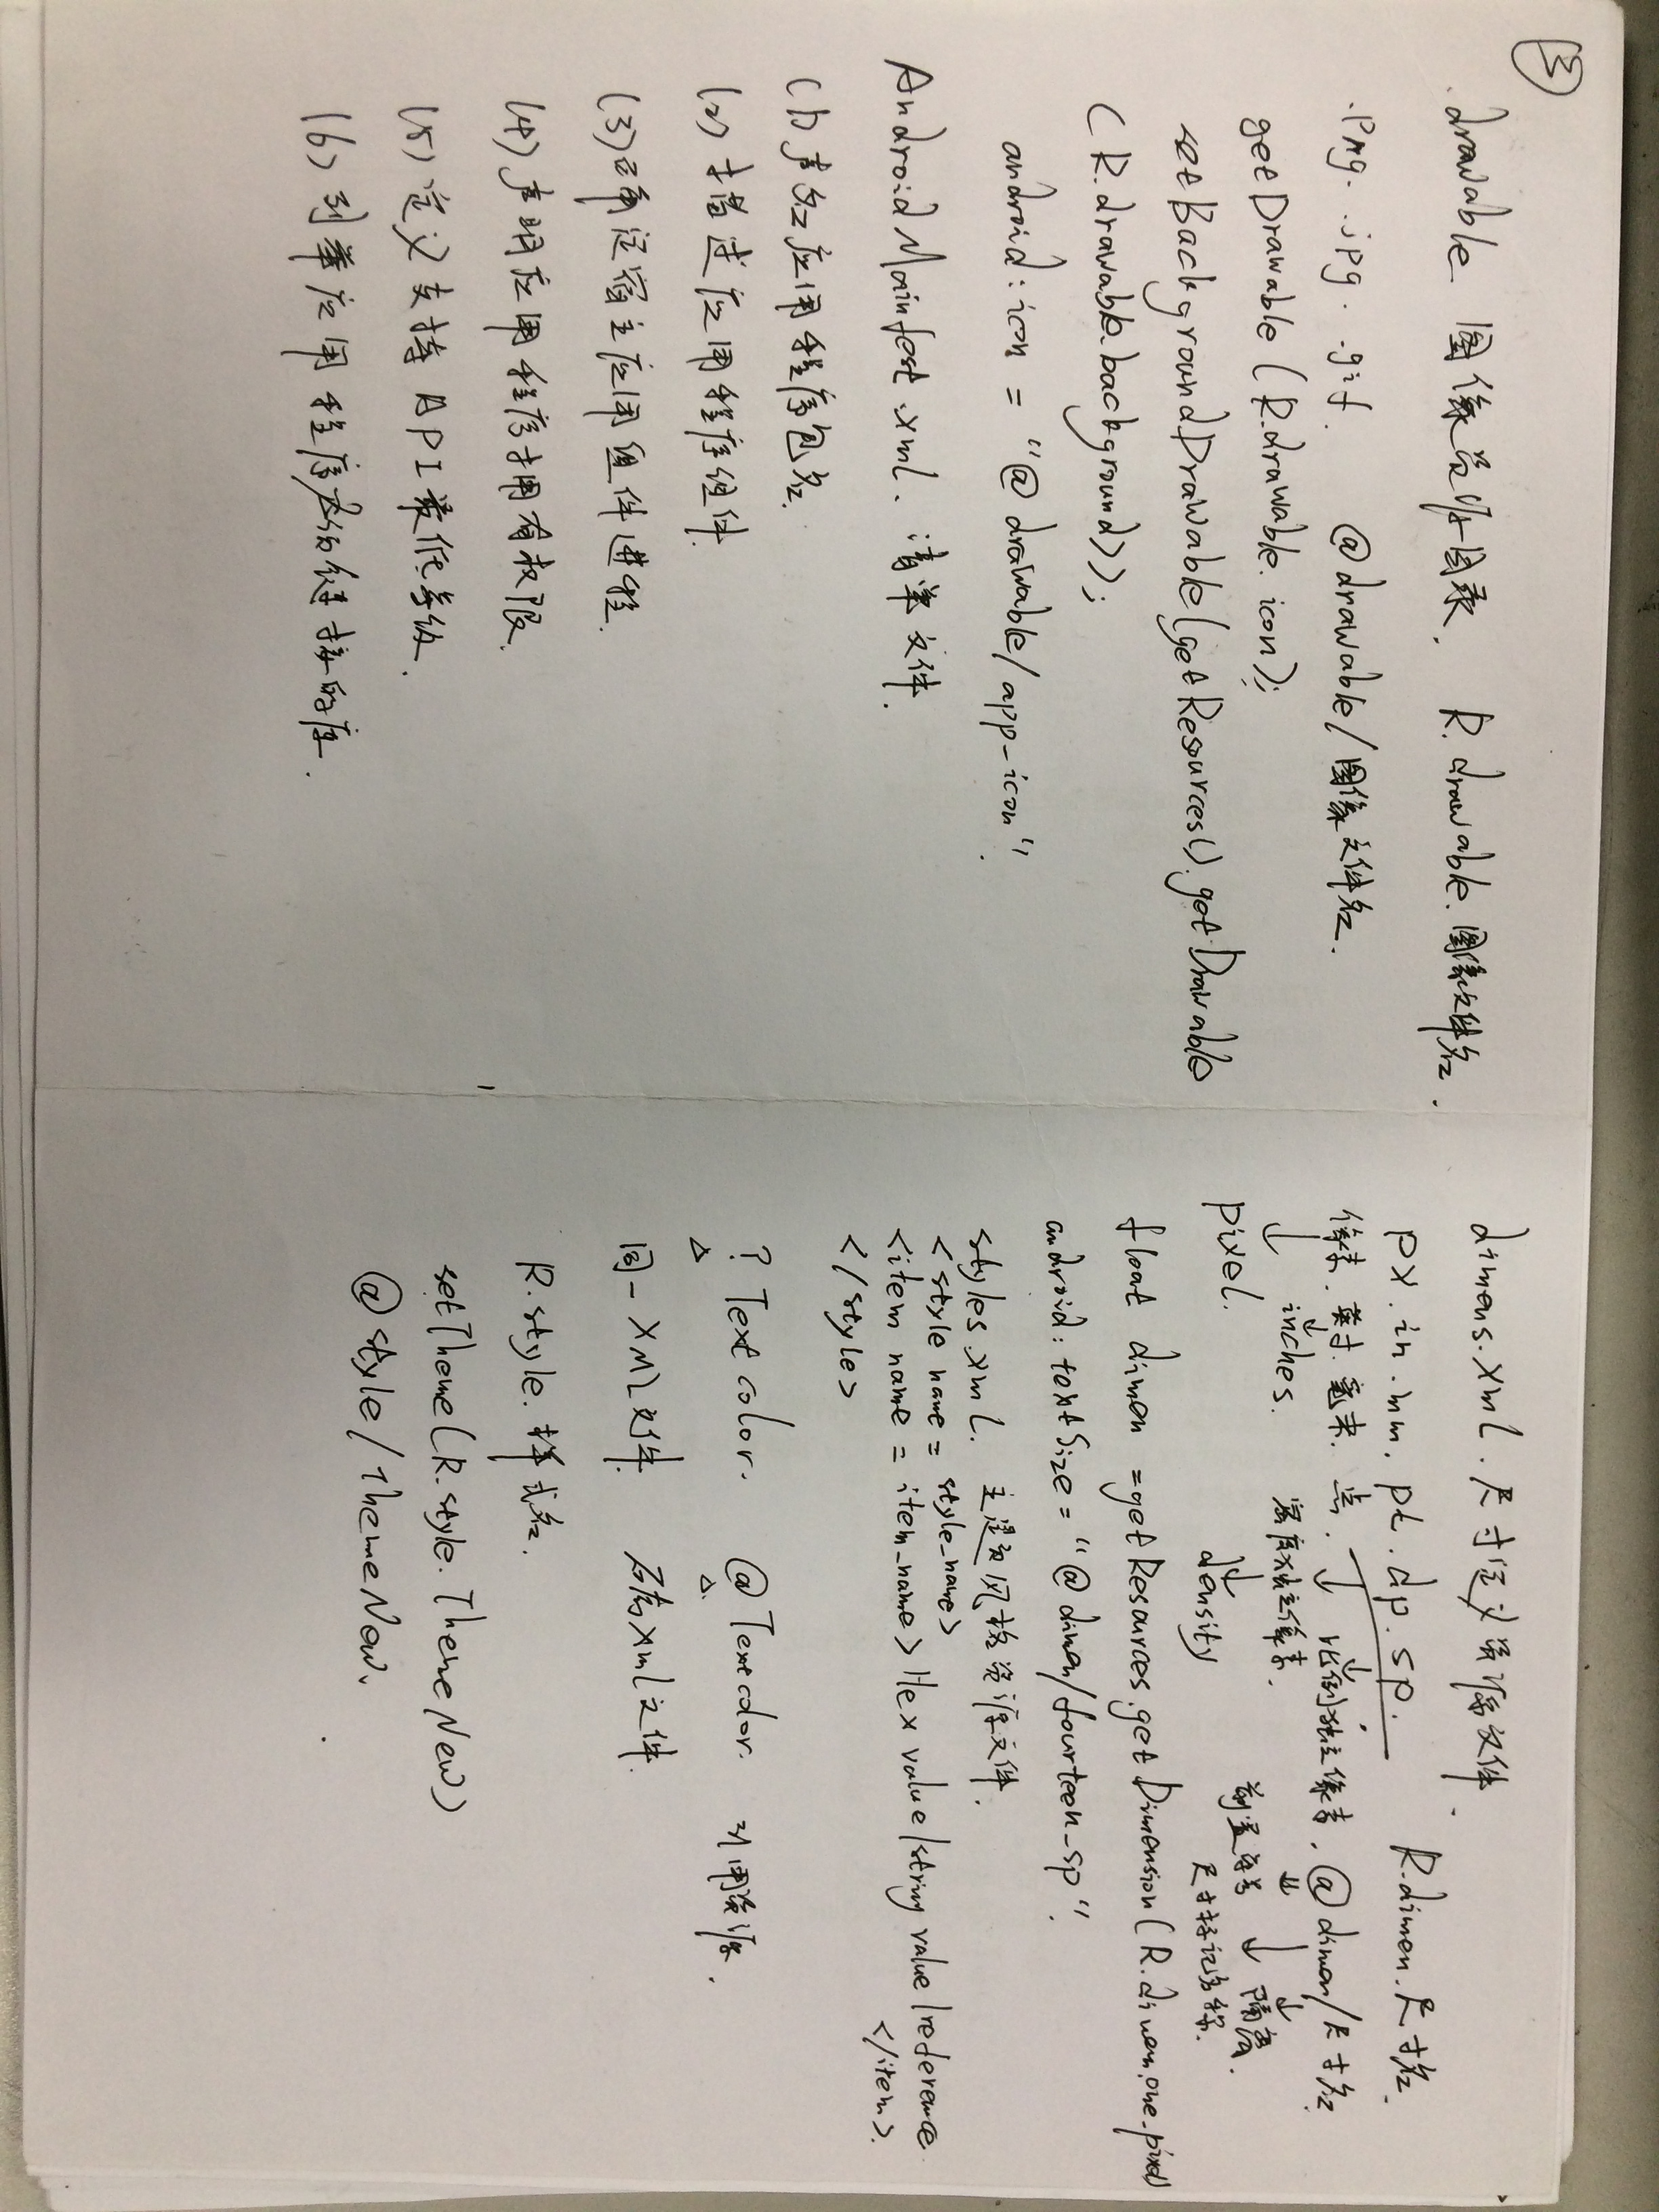 ③
drawable 图像资源目录. R.drawable.图像文件名.
.png. .jpg. .gif. @drawable/图像文件名.
getDrawable(R.drawable.icon);
setBackgroundDrawable(getResources().getDrawable
(R.drawable.background));
android:icon = "@drawable/app_icon".
AndroidMainfest.xml. 清单文件.
(1) 声名应用程序包名.
(2) 描述应用程序组件.
(3) 确定宿主应用组件进程.
(4) 声明应用程序拥有权限.
(5) 定义支持API最低等级.
(6) 列举应用程序必须链接的库.
dimens.xml. 尺寸定义资源文件.
px. in. mm. pt. dp. sp. R.dimen.尺寸名.
像素. 英寸. 毫米. 点. 比例独立像素. @dimen/尺寸名.
inches. 密度独立像素. 前置符号 隔离.
pixel. density 尺寸标记名称.
float dimen = getResources.getDimension(R.dimen.one_pixel)
android:textSize = "@dimen/fourteen_sp".
styles.xml. 主题和风格资源文件.
<style name = style_name>
<item name = item_name> Hex value/string value/reference
</item>.
</style>
? Text color. @ Text color. 引用资源.
同一XML文件. 不同xml文件.
R.style.样式名.
setTheme(R.style.ThemeNew)
@style/ThemeNew.